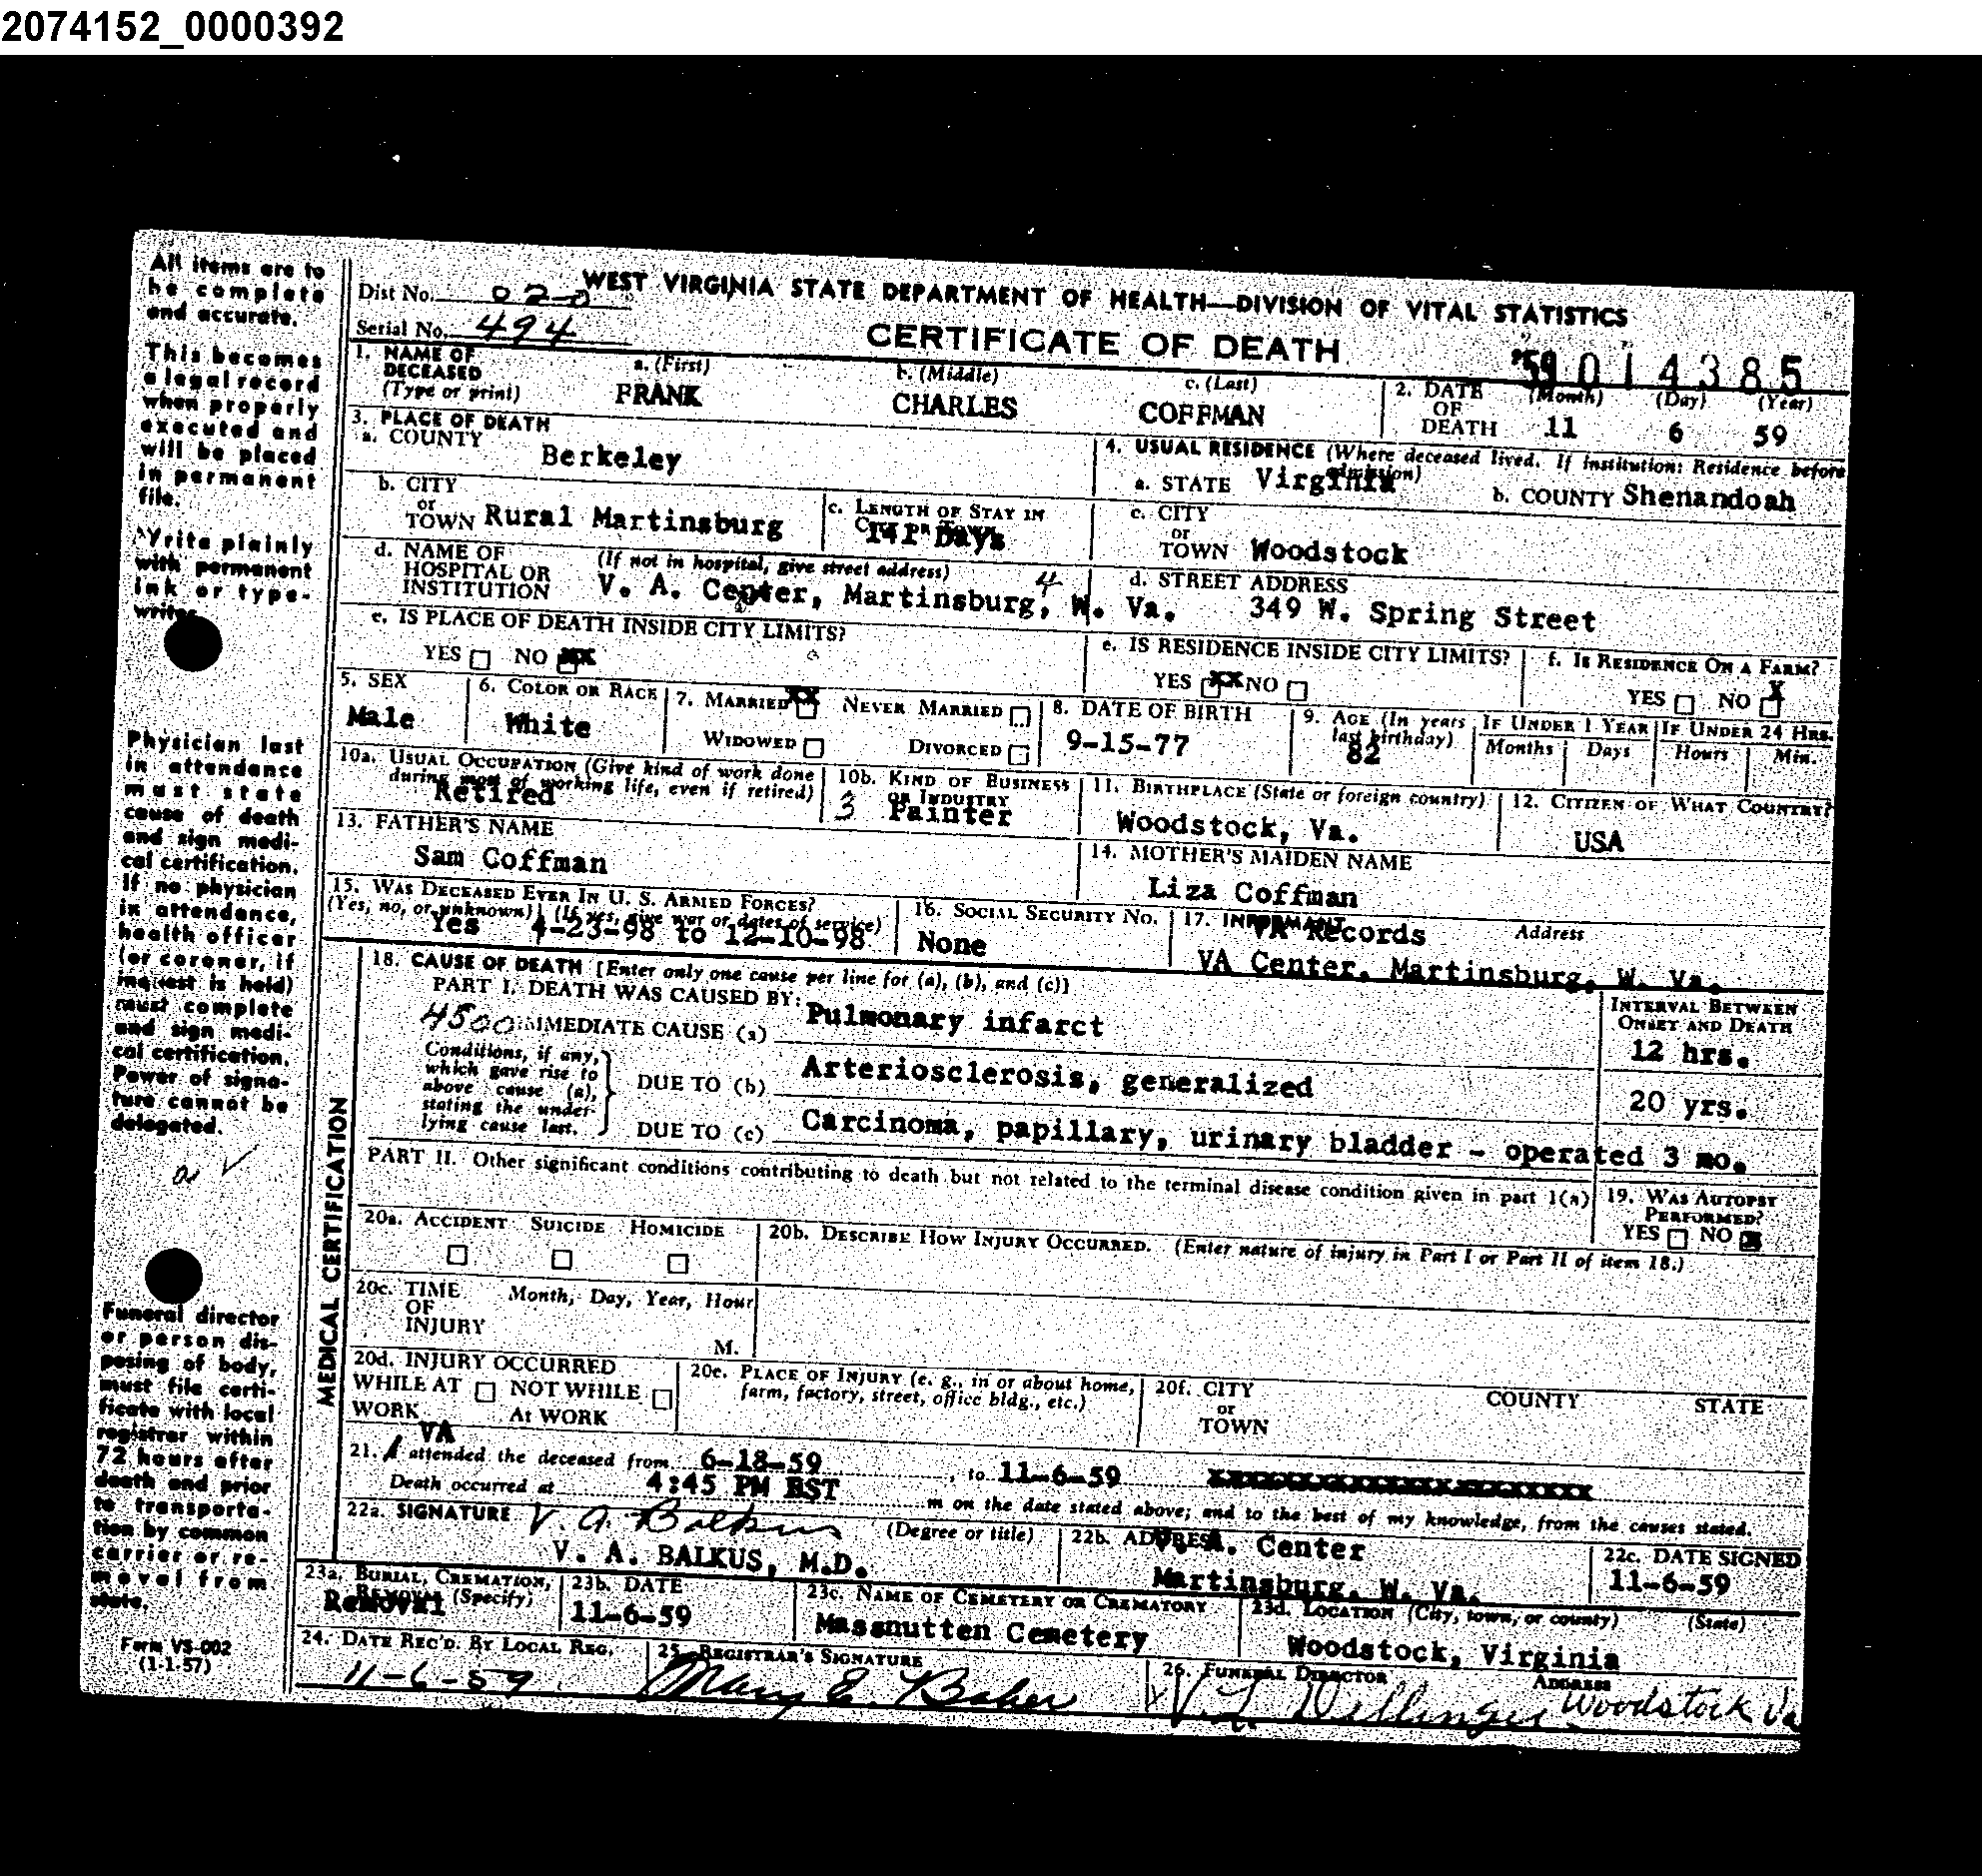 2074152_0000392
All items are to be complete and accurate.
This becomes a legal record when properly executed and will be placed in permanent file.
Write plainly with permanent ink or typewriter
Physician last in attendance must state cause of death and sign medical certification. If no physician in attendance, health officer (or coroner, if inquest is held) must complete and sign medical certification. Power of signature cannot be delegated.
Funeral director or person disposing of body, must file certificate with local registrar within 72 hours after death and prior to transportation by common carrier or removal from state.
Form VS-002
(1-1-57)
Dist No. 020 WEST VIRGINIA STATE DEPARTMENT OF HEALTH—DIVISION OF VITAL STATISTICS
Serial No. 494 CERTIFICATE OF DEATH
'59 014385
1. NAME OF DECEASED (Type or print) a. (First) FRANK b. (Middle) CHARLES c. (Last) COFFMAN
2. DATE OF DEATH (Month) 11 (Day) 6 (Year) 59
3. PLACE OF DEATH
a. COUNTY Berkeley
4. USUAL RESIDENCE (Where deceased lived. If institution: Residence before admission)
a. STATE Virginia b. COUNTY Shenandoah
b. CITY or TOWN Rural Martinsburg c. LENGTH OF STAY IN 141 Days
c. CITY or TOWN Woodstock
d. NAME OF HOSPITAL OR INSTITUTION (If not in hospital, give street address) V. A. Center, Martinsburg, W. Va. 4
d. STREET ADDRESS 349 W. Spring Street
e. IS PLACE OF DEATH INSIDE CITY LIMITS? YES NO XX
e. IS RESIDENCE INSIDE CITY LIMITS? YES XX NO
f. IS RESIDENCE ON A FARM? YES NO X
5. SEX Male
6. COLOR OR RACE White
7. MARRIED XX NEVER MARRIED WIDOWED DIVORCED
8. DATE OF BIRTH 9-15-77
9. AGE (In years last birthday) 82 IF UNDER 1 YEAR Months Days IF UNDER 24 HRS. Hours Min.
10a. USUAL OCCUPATION (Give kind of work done during most of working life, even if retired) Retired
10b. KIND OF BUSINESS OR INDUSTRY 3 Painter
11. BIRTHPLACE (State or foreign country) Woodstock, Va.
12. CITIZEN OF WHAT COUNTRY? USA
13. FATHER'S NAME Sam Coffman
14. MOTHER'S MAIDEN NAME Liza Coffman
15. WAS DECEASED EVER IN U. S. ARMED FORCES? (Yes, no, or unknown) (If yes, give war or dates of service) Yes 4-23-98 to 12-10-98
16. SOCIAL SECURITY NO. None
17. INFORMANT VA Records Address
VA Center, Martinsburg, W. Va.
MEDICAL CERTIFICATION
18. CAUSE OF DEATH [Enter only one cause per line for (a), (b), and (c)]
PART I. DEATH WAS CAUSED BY:
INTERVAL BETWEEN ONSET AND DEATH
4500 IMMEDIATE CAUSE (a) Pulmonary infarct 12 hrs.
Conditions, if any, which gave rise to above cause (a), stating the underlying cause last.
DUE TO (b) Arteriosclerosis, generalized 20 yrs.
DUE TO (c) Carcinoma, papillary, urinary bladder - operated 3 mo.
PART II. Other significant conditions contributing to death but not related to the terminal disease condition given in part I(a)
19. WAS AUTOPSY PERFORMED? YES NO
20a. ACCIDENT SUICIDE HOMICIDE
20b. DESCRIBE HOW INJURY OCCURRED. (Enter nature of injury in Part I or Part II of item 18.)
20c. TIME OF INJURY Month, Day, Year, Hour M.
20d. INJURY OCCURRED WHILE AT WORK NOT WHILE At WORK
20e. PLACE OF INJURY (e. g., in or about home, farm, factory, street, office bldg., etc.)
20f. CITY or TOWN COUNTY STATE
VA
21. I attended the deceased from 6-18-59, to 11-6-59
Death occurred at 4:45 PM EST m on the date stated above; and to the best of my knowledge, from the causes stated.
22a. SIGNATURE V. A. Balkus (Degree or title)
V. A. BALKUS, M.D.
22b. ADDRESS V. A. Center
Martinsburg, W. Va.
22c. DATE SIGNED 11-6-59
23a. BURIAL, CREMATION, REMOVAL (Specify) Removal
23b. DATE 11-6-59
23c. NAME OF CEMETERY OR CREMATORY Massnutten Cemetery
23d. LOCATION (City, town, or county) (State) Woodstock, Virginia
24. DATE REC'D. BY LOCAL REG. 11-6-59
25. REGISTRAR'S SIGNATURE Mary E. Baker
26. FUNERAL DIRECTOR ADDRESS V. L. Dellinger Woodstock Va